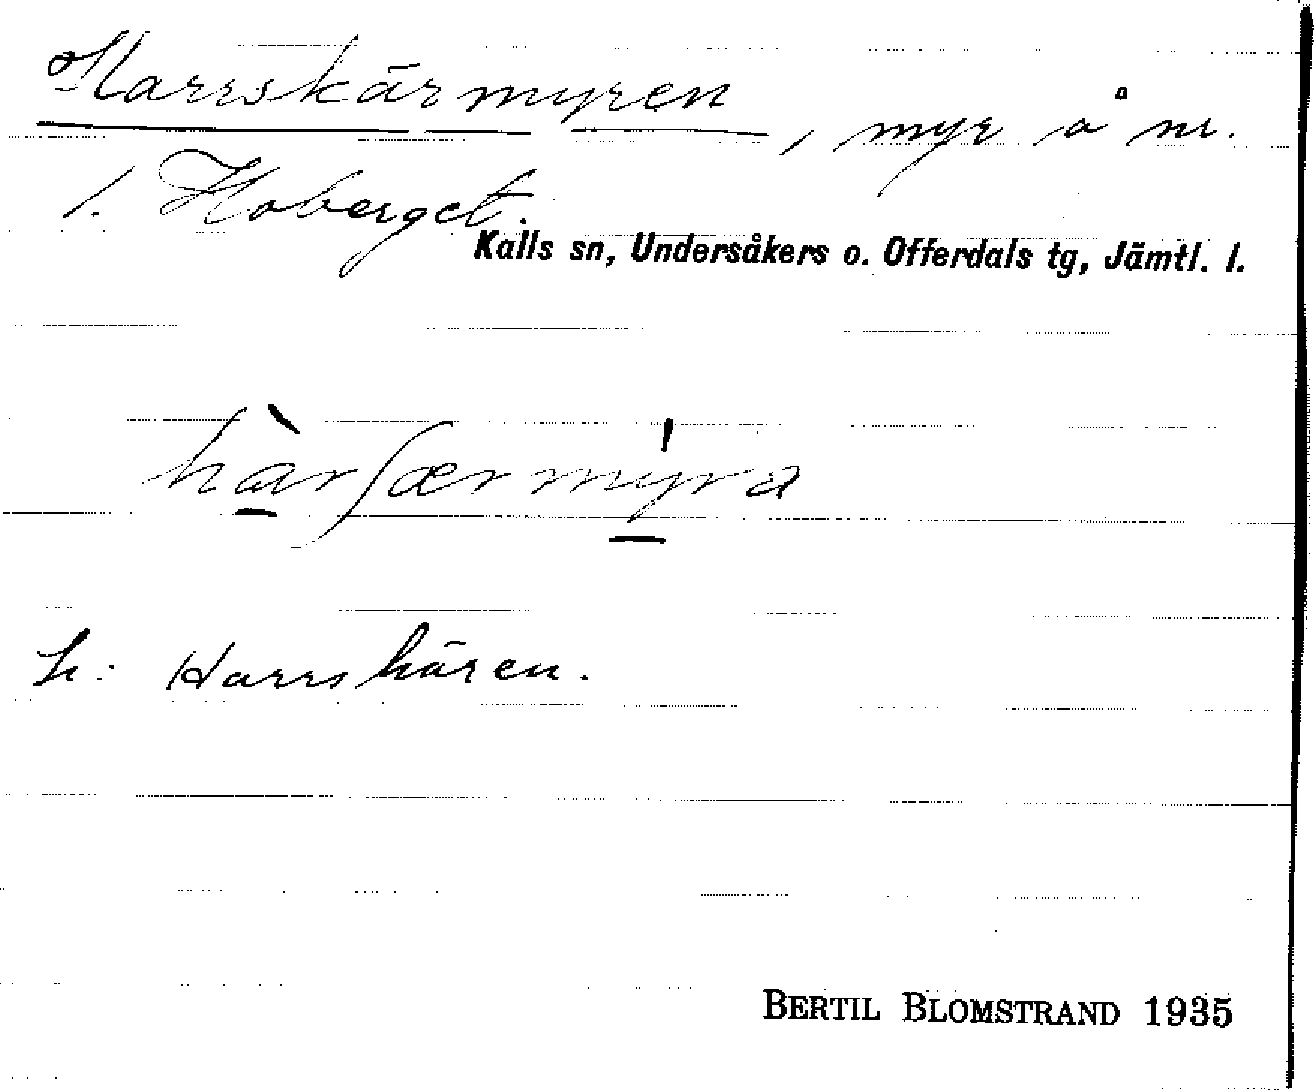 Harrskärmyren, myr å nr.
1. Hoberget.
Kalls sn, Undersåkers o. Offerdals tg, Jämtl. l.
hàrʃærmy̍ra
L: Harrskären.
BERTIL BLOMSTRAND 1935